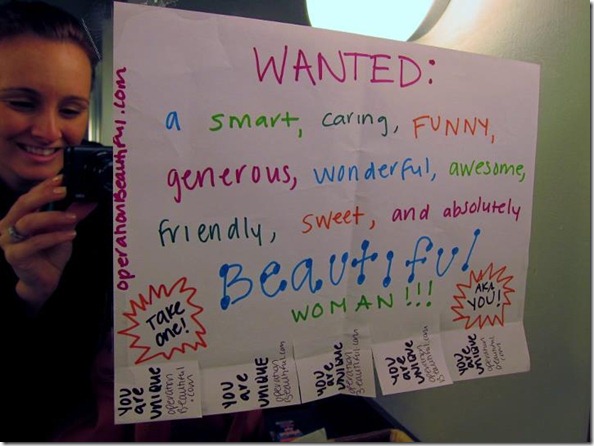 WANTED:
a smart, caring, FUNNY,
generous, wonderful, awesome,
friendly, sweet, and absolutely
BEAUTIFUL
WOMAN!!!
operationBeautiful.com
TAKE
one!
AKA
YOU!
YOU
are
UNIQUE
operation
Beautiful
.com
YOU
are
UNIQUE
operation
Beautiful.com
YOU
are
UNIQUE
operation
Beautiful.com
YOU
are
UNIQUE
operation
Beautiful.com
YOU
are
UNIQUE
operation
Beautiful
.com